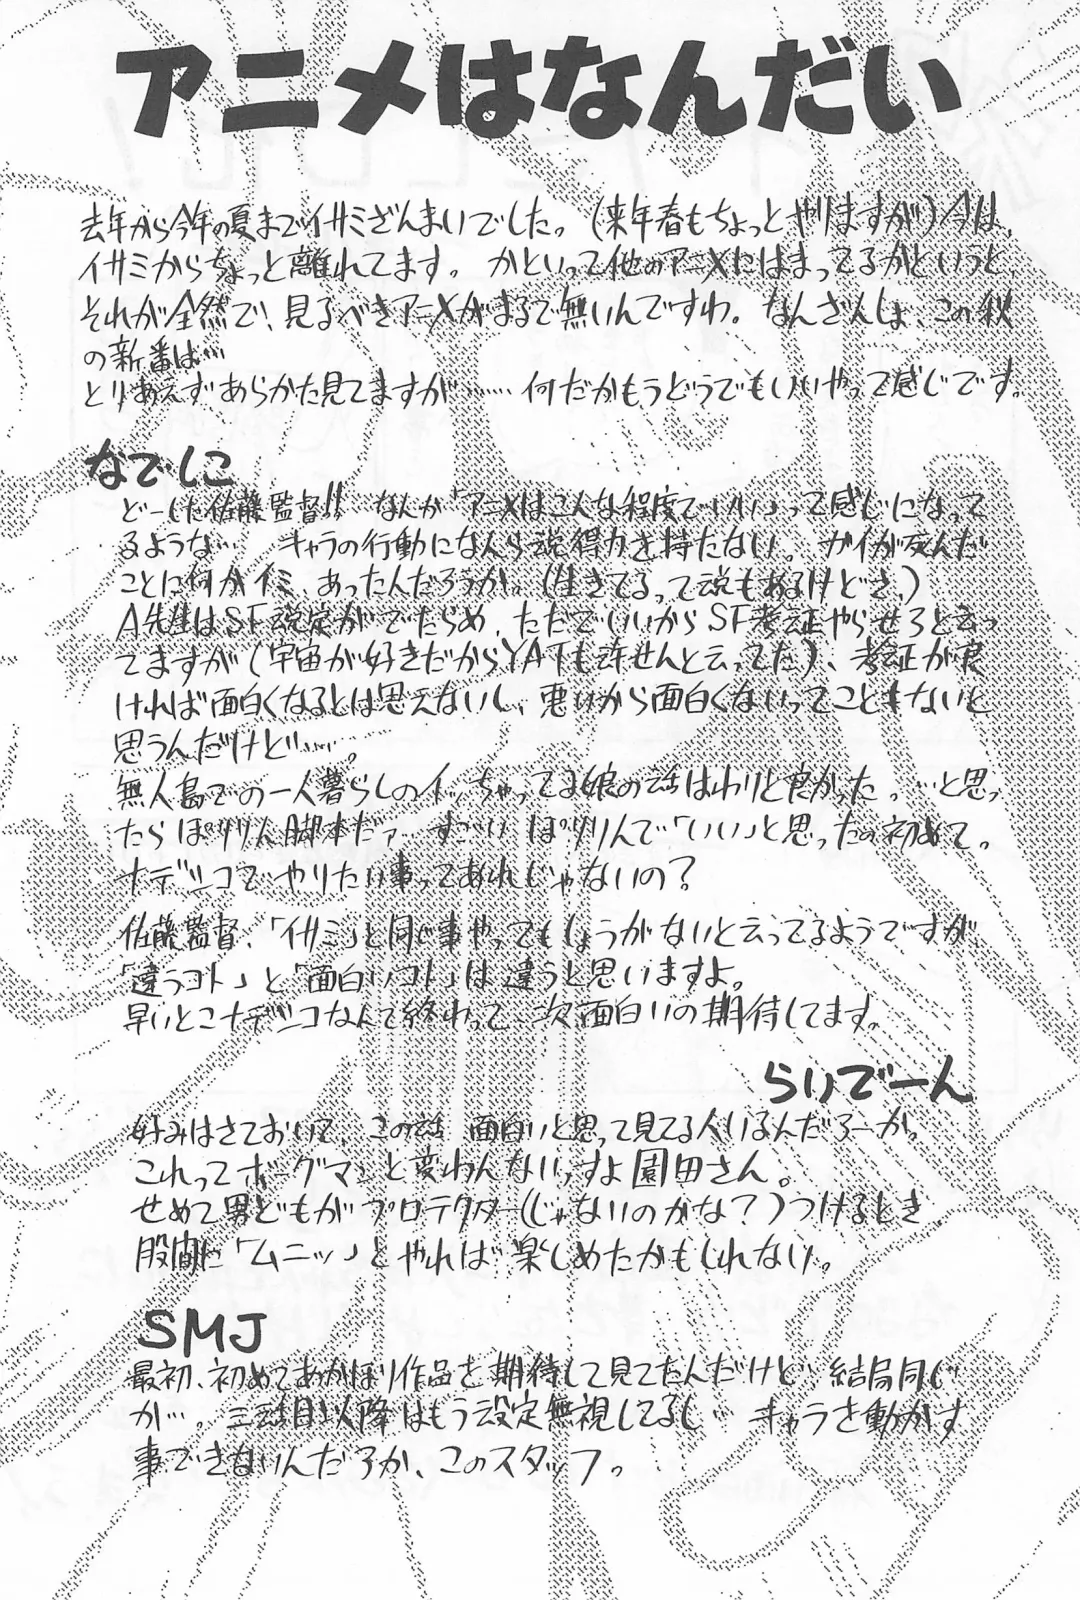 アニメはなんだい
去年から今年の夏までイサミざんまいでした。(来年春もちょっとやりますが)今は、
イサミからちょっと離れてます。かといって他のアニメにはまってるかというと、
それが全然で、見るべきアニメがまるで無いんですわ。なんざんしょ、この秋
の新番は…
とりあえずあらかた見てますが……何だかもうどうでもいいやって感じです。
なでしこ
どーした佐藤監督!! なんか「アニメはこんな程度でいい」って感じになって
るような… キャラの行動になんら説得力を持たない。ガイが死んだ
ことに何かイミ、あったんだろうか。(生きてるって説もあるけどさ、)
A先生はSF設定がでたらめ、ただでいいからSF考証やらせろと云っ
てますが(宇宙が好きだからYATも許せんと云ってた)、考証が良
ければ面白くなるとは思えないし、悪いから面白くないってこともないと
思うんだけど……。
無人島での一人暮らしのイッちゃってる娘の話はわりと良かった。…と思っ
たらぽりりん脚本だァ…すごいぽりりんで「いい」と思ったの初めて。
ナデシコでやりたい事ってあれじゃないの?
佐藤監督、「イサミ」と同じ事やってもしょうがないと云ってるようですが、
「違うコト」と「面白いコト」は違うと思いますよ。
早いとこナデシコなんて終わって 次、面白いの期待してます。
らいでーん
好みはさておいて、この話 面白いと思って見てる人いるんだろーか。
これってボーグマンと変わんないっすよ園田さん。
せめて男どもがプロテクター(じゃないのかな?)つけるとき、
股間に「ムニッ」とやれば楽しめたかもしれない。
SMJ
最初、初めてあかほり作品を期待して見てたんだけど…結局同じ
か…。三話目以降はもう設定無視してるし… キャラを動かす
事できないんだろか、このスタッフ。